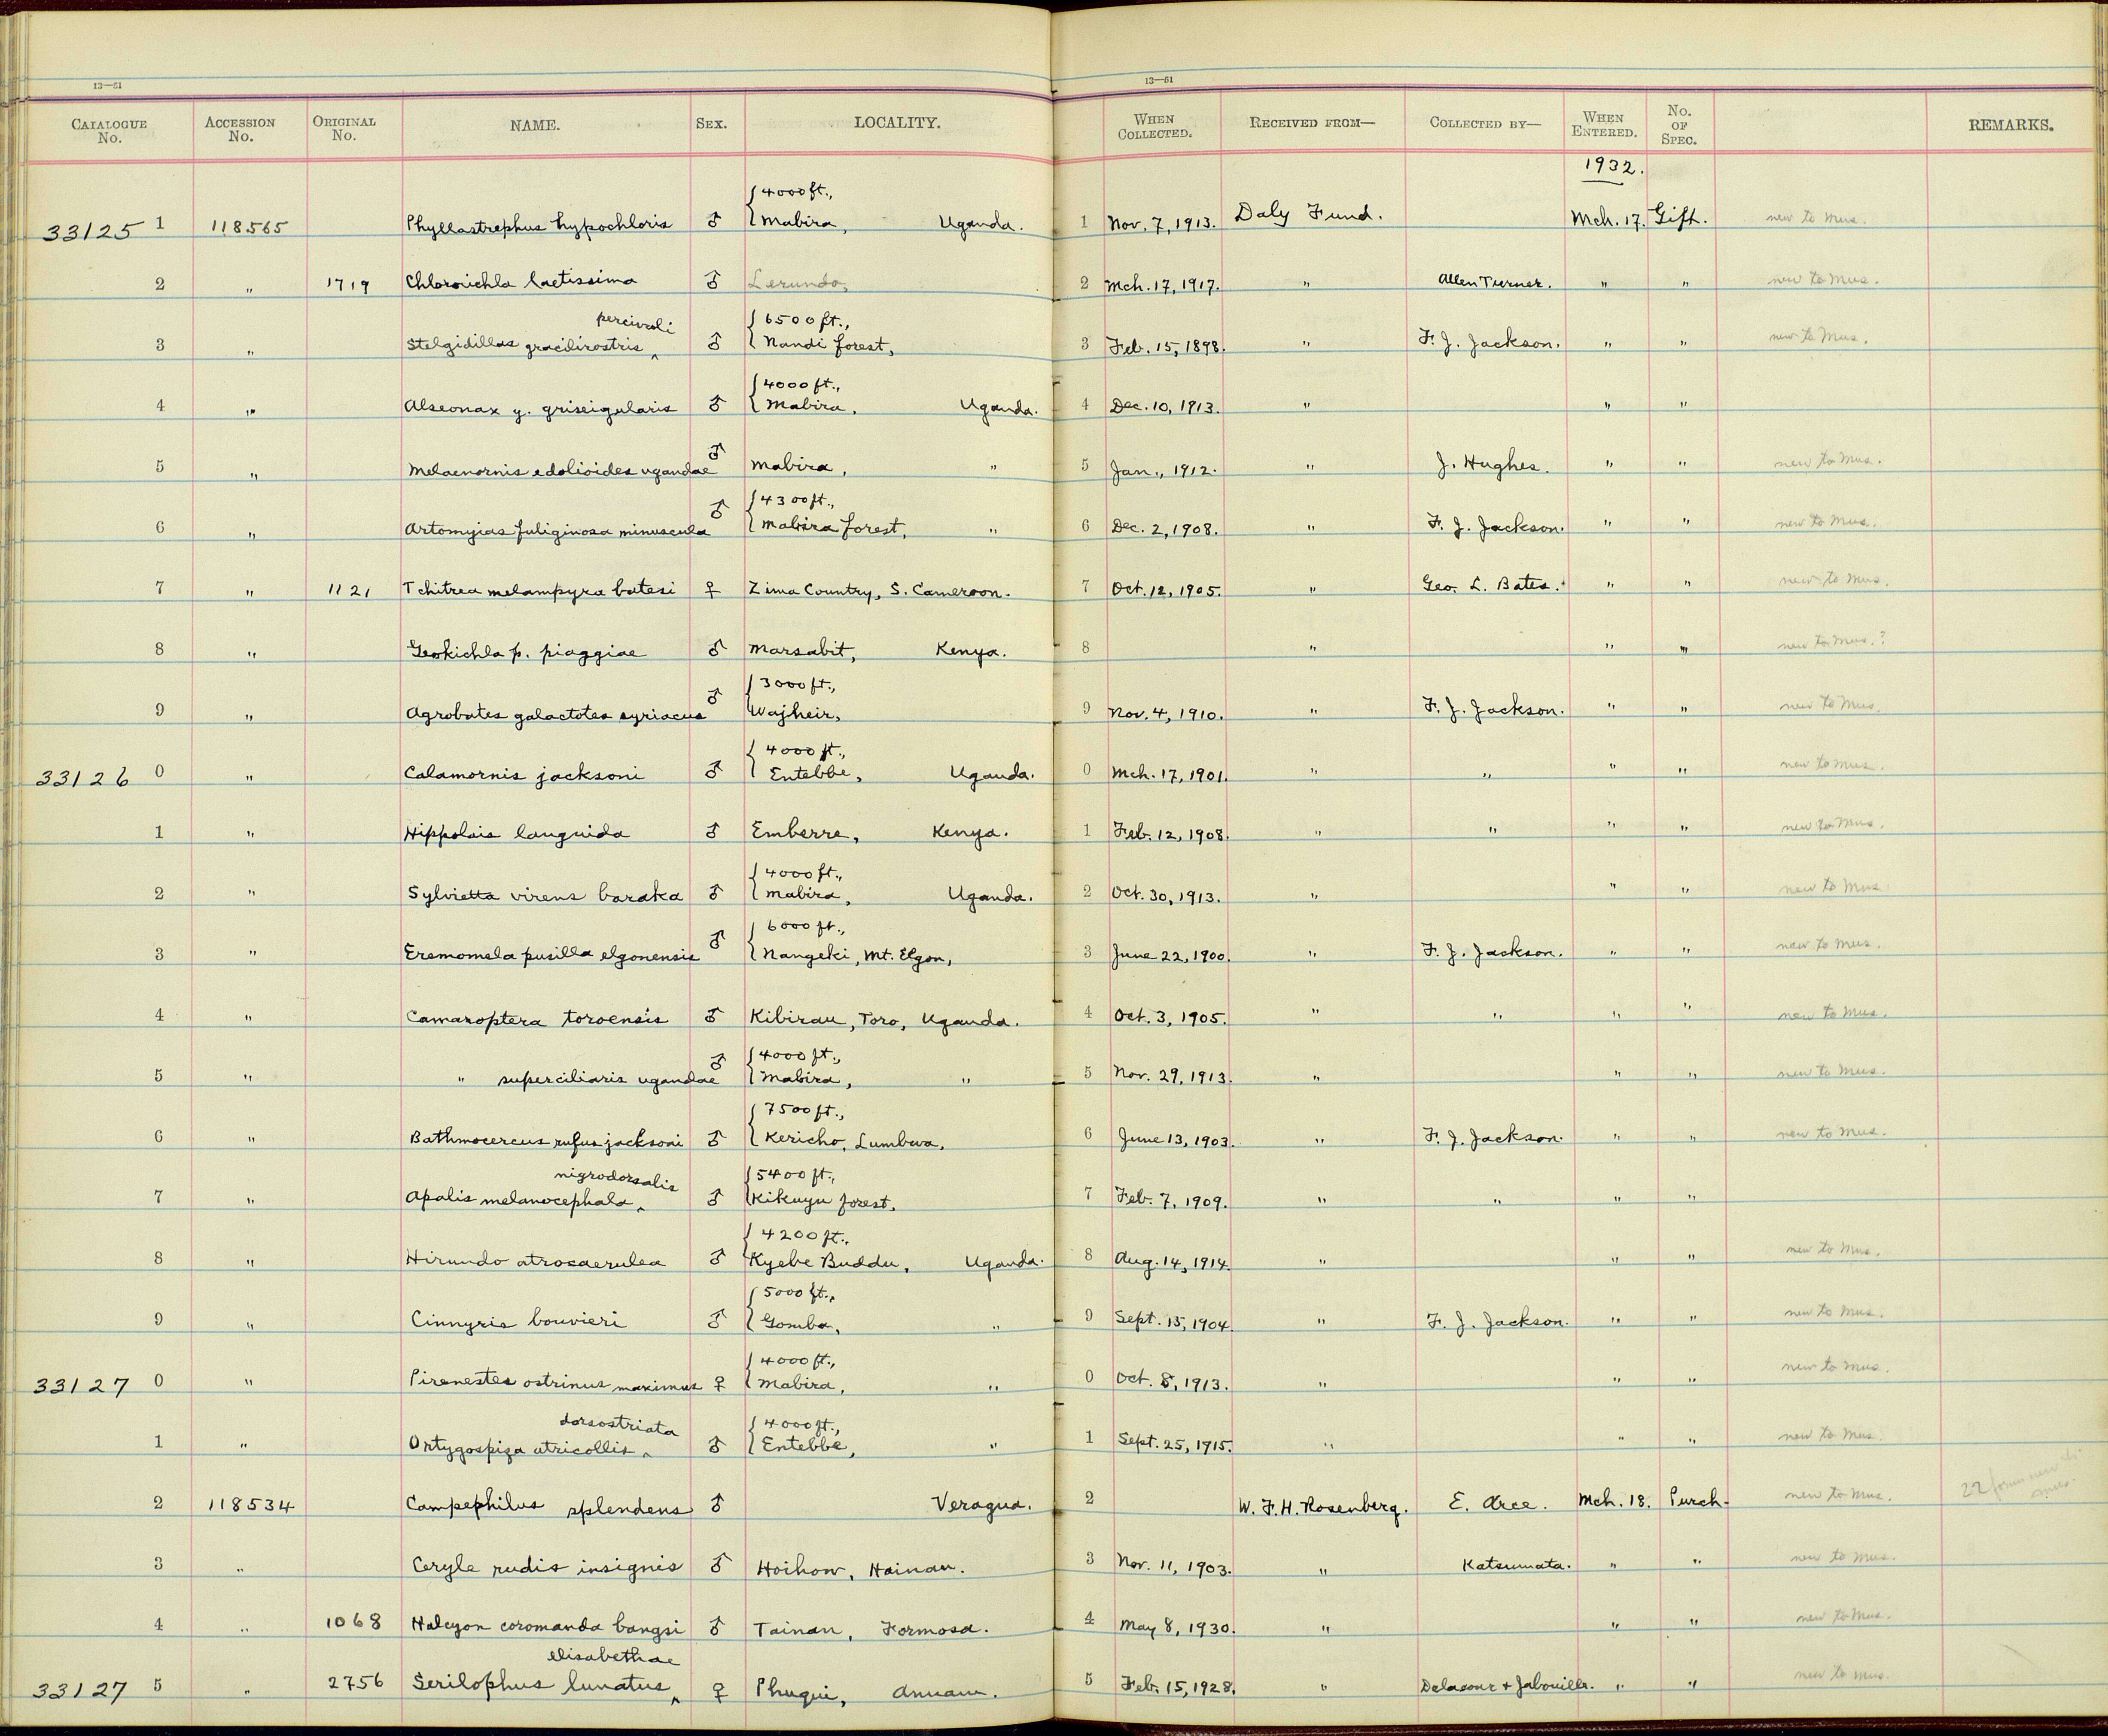 13—51
13—51
CATALOGUE No. ACCESSION No. ORIGINAL No. NAME. SEX. LOCALITY. WHEN COLLECTED. RECEIVED FROM— COLLECTED BY— WHEN ENTERED. No. OF SPEC. REMARKS.
1932.
4000 ft.,
33125 1 118565 Phyllastrephus hypochloris ♂ Mabira, Uganda. 1 Nov. 7, 1913. Daly Fund. Mch. 17. Gift. new to Mus.
2 " 1719 Chlorocichla laetissima ♂ Lerundo, 2 Mch. 17, 1917. " Allen Turner. " " new to Mus.
percivali 6500 ft.,
3 " Stelgidillas gracilirostris ‸ ♂ Nandi forest, 3 Feb. 15, 1898. " F. J. Jackson. " " new to Mus.
4000 ft.,
4 " Alseonax g. griseigularis ♂ Mabira, Uganda. 4 Dec. 10, 1913. " " "
5 " Melaenornis edolioides ugandae ♂ Mabira, " 5 Jan., 1912. " J. Hughes. " " new to Mus.
4300 ft.,
6 " Artomyias fuliginosa minuscula ♂ Mabira forest, " 6 Dec. 2, 1908. " F. J. Jackson. " " new to Mus.
7 " 1121 Tchitrea melampyra batesi ♀ Zima Country, S. Cameroon. 7 Oct. 12, 1905. " Geo. L. Bates. " " new to Mus.
8 " Geokichla p. piaggiae ♂ Marsabit, Kenya. 8 " " " new to Mus.?
3000 ft.,
9 " Agrobates galactotes syriacus ♂ Wajheir, 9 Nov. 4, 1910. " F. J. Jackson. " " new to Mus.
4000 ft.,
33126 0 " Calamornis jacksoni ♂ Entebbe, Uganda. 0 Mch. 17, 1901. " " " " new to Mus.
1 " Hippolais languida ♂ Emberre, Kenya. 1 Feb. 12, 1908. " " " " new to Mus.
4000 ft.,
2 " Sylvietta virens baraka ♂ Mabira, Uganda. 2 Oct. 30, 1913. " " " new to Mus.
6000 ft.,
3 " Eremomela pusilla elgonensis ♂ Nangeki, Mt. Elgon, 3 June 22, 1900. " F. J. Jackson. " " new to Mus.
4 " Camaroptera toroensis ♂ Kibirau, Toro, Uganda. 4 Oct. 3, 1905. " " " " new to Mus.
4000 ft.,
5 " " superciliaris ugandae ♂ Mabira, " 5 Nov. 29, 1913. " " " new to Mus.
7500 ft.,
6 " Bathmocercus rufus jacksoni ♂ Kericho, Lumbwa, 6 June 13, 1903. " F. J. Jackson. " " new to Mus.
nigrodorsalis 5400 ft.,
7 " Apalis melanocephala ‸ ♂ Kikuyu forest, 7 Feb. 7, 1909. " " " "
4200 ft.,
8 " Hirundo atrocaerulea ♂ Kyebe Buddu, Uganda. 8 Aug. 14, 1914. " " " new to Mus.
5000 ft.,
9 " Cinnyris bouvieri ♂ Gomba, " 9 Sept. 15, 1904. " F. J. Jackson. " " new to Mus.
4000 ft.,
33127 0 " Pirenestes ostrinus maximus ♀ Mabira, " 0 Oct. 8, 1913. " " " new to Mus.
dorsostriata 4000 ft.,
1 " Ortygospiza atricollis ‸ ♂ Entebbe, " 1 Sept. 25, 1915. " " " new to Mus.
2 118534 Campephilus splendens ♂ Veragua. 2 W. F. H. Rosenberg. E. Arce. Mch. 18. Purch. new to Mus. 22 forms new to mus.
3 " Ceryle rudis insignis ♂ Hoihow, Hainan. 3 Nov. 11, 1903. " Katsumata. " " new to Mus.
4 " 1068 Halcyon coromanda bangsi ♂ Tainan, Formosa. 4 May 8, 1930. " " " new to Mus.
elisabethae
33127 5 " 2756 Serilophus lunatus ‸ ♀ Phuqui, Annam. 5 Feb. 15, 1928. " Delacour & Jabouille. " " new to Mus.